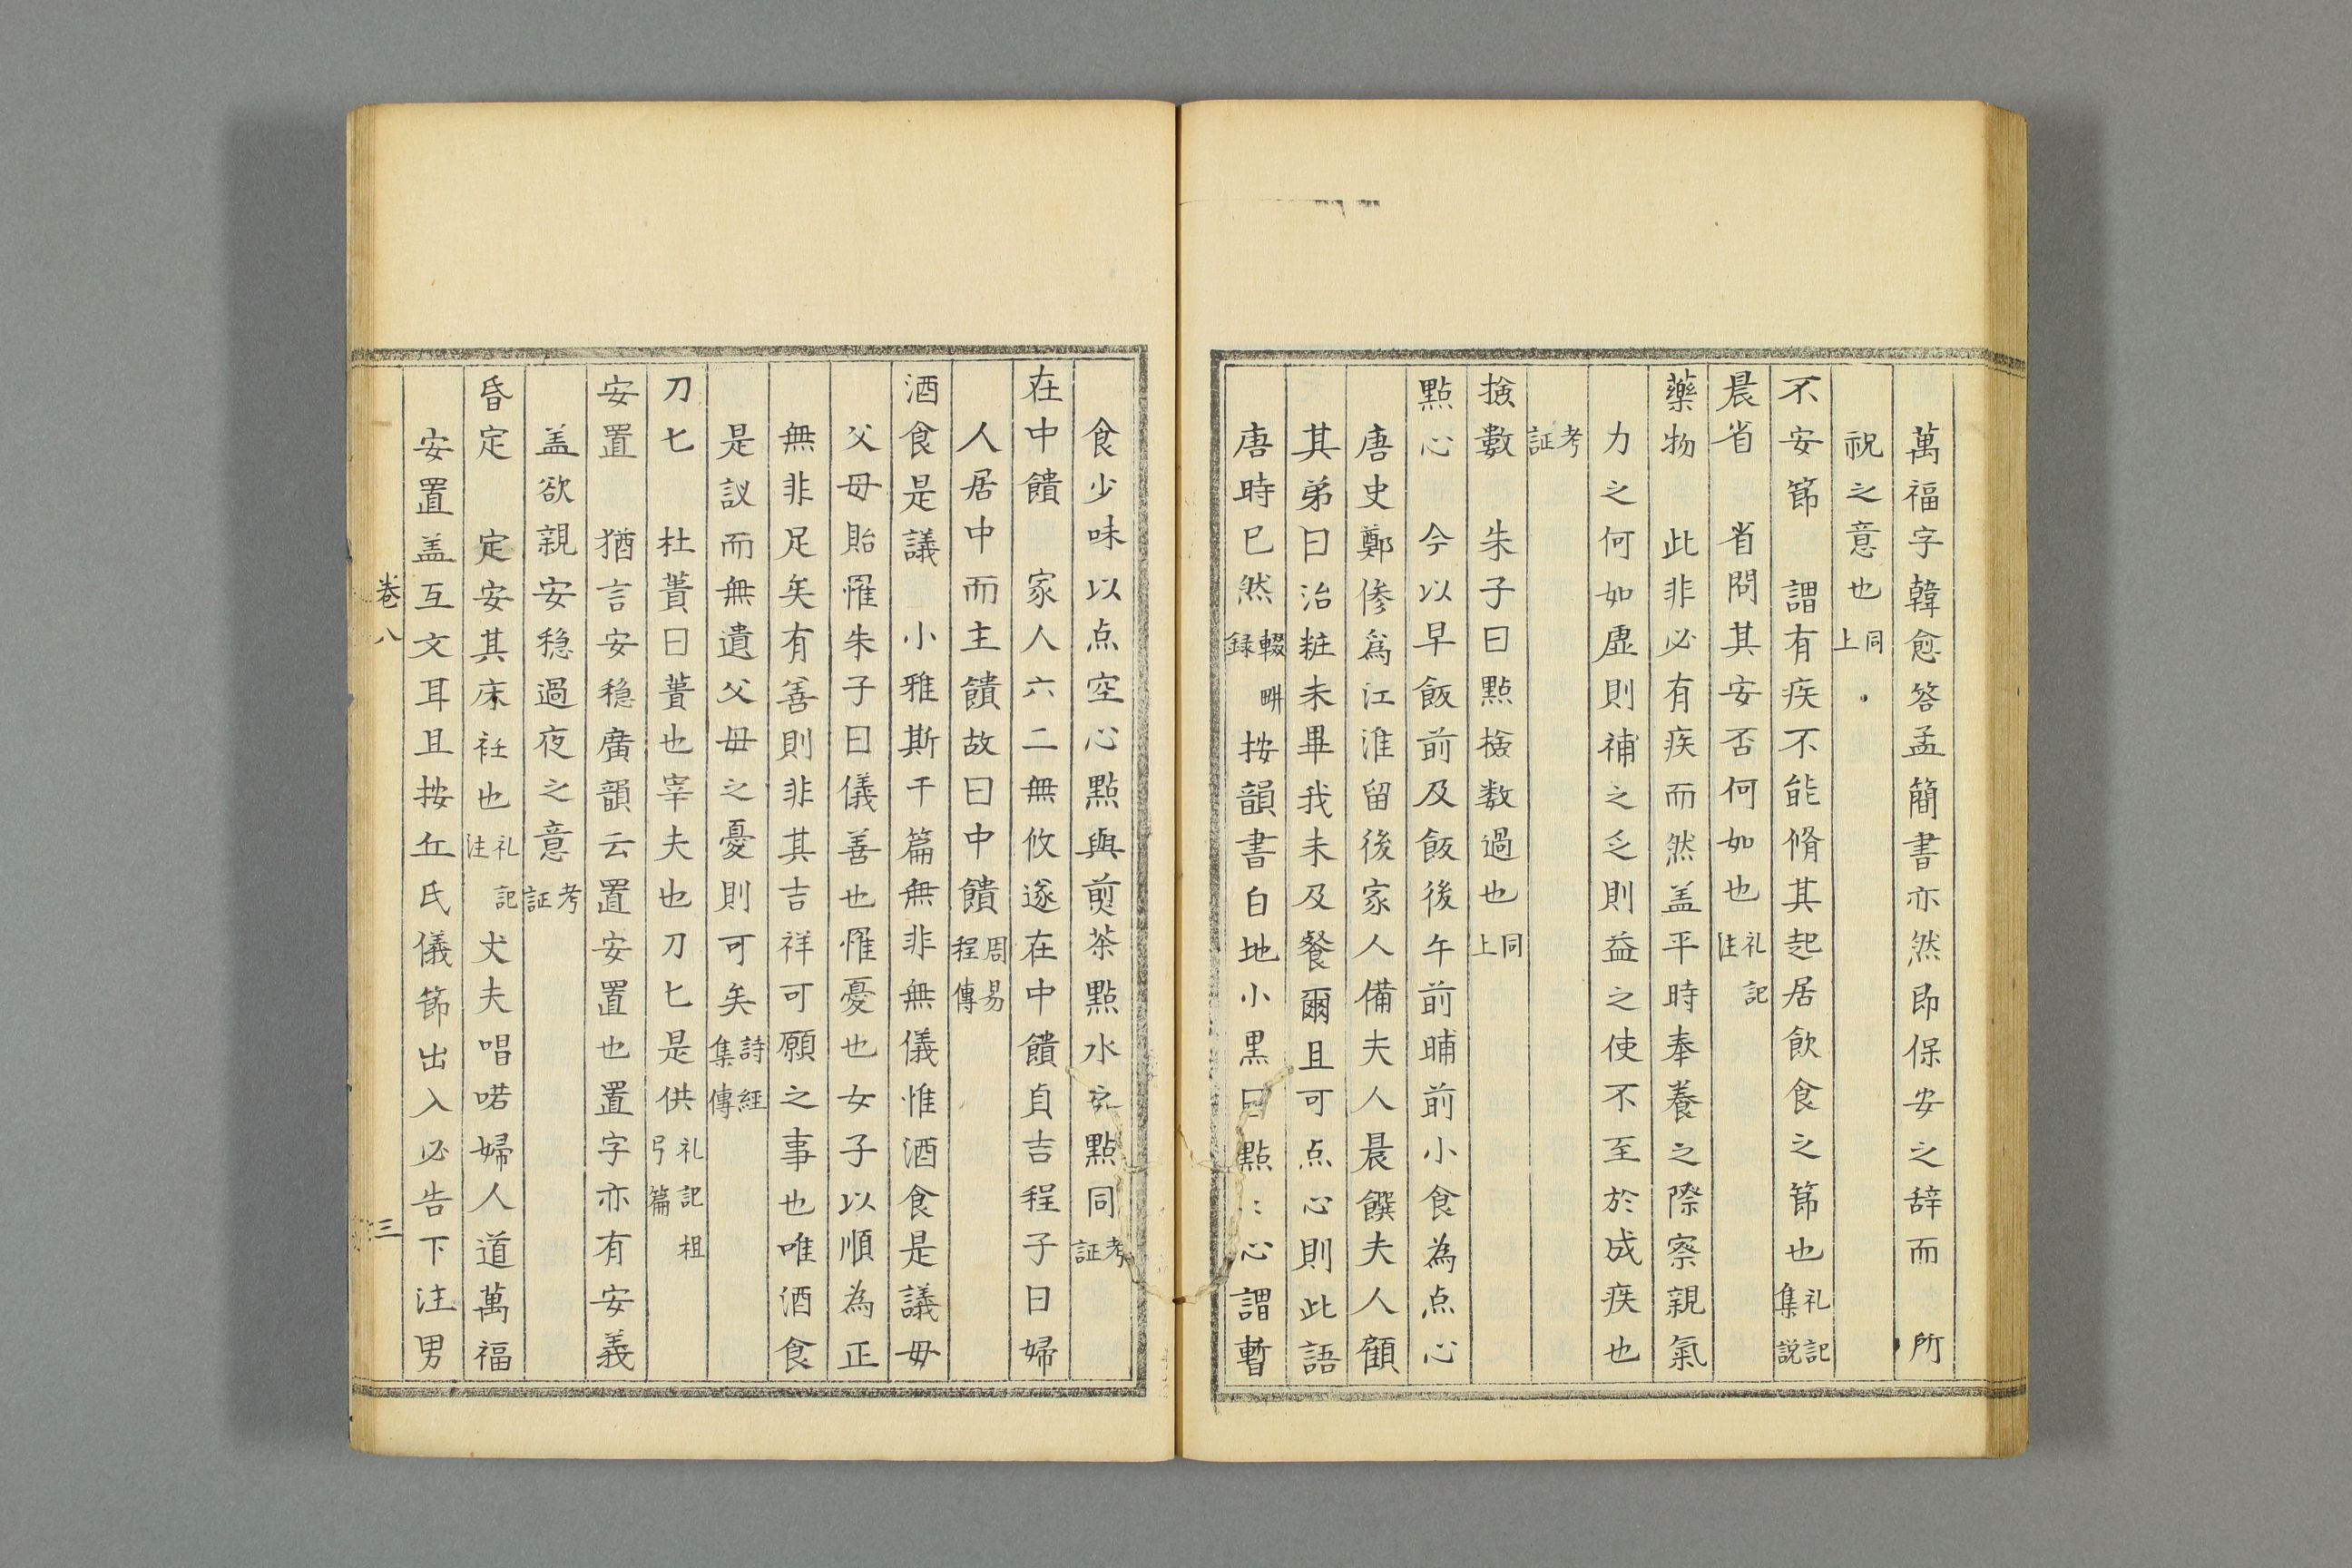 萬福字韓愈答孟簡書亦然即保安之辞而所
祝之意也同上
不安節　謂有疾不能脩其起居飲食之節也礼記集説
晨省　省問其安否何如也礼記注
藥物　此非必有疾而然盖平時奉養之際察親氣
力之何如虛則補之乏則益之使不至於成疾也
考証
撿數　朱子曰點撿数過也同上
點心　今以早飯前及飯後午前晡前小食為点心
唐史鄭傪爲江淮留後家人備夫人晨饌夫人顧
其弟曰治粧未畢我未及餐爾且可点心則此語
唐時已然輟畊録按韻書白地小黒曰點〻心謂暫
食少味以点空心點與煎茶點水之點同考証
在中饋　家人六二無攸遂在中饋貞吉程子曰婦
人居中而主饋故曰中饋周易程傳
酒食是議　小雅斯干篇無非無儀惟酒食是議毋
父母貽罹朱子曰儀善也罹憂也女子以順為正
無非足矣有善則非其吉祥可願之事也唯酒食
是議而無遺父母之憂則可矣詩經集傳
刀匕　杜蕢曰蕢也宰夫也刀匕是供礼記檀弓篇
安置　猶言安穏廣韻云置安置也置字亦有安義
盖欲親安穏過夜之意考証
昏定　定安其床衽也礼記注丈夫唱喏婦人道萬福
安置盖互文耳且按丘氏儀節出入必告下注男
卷八
三